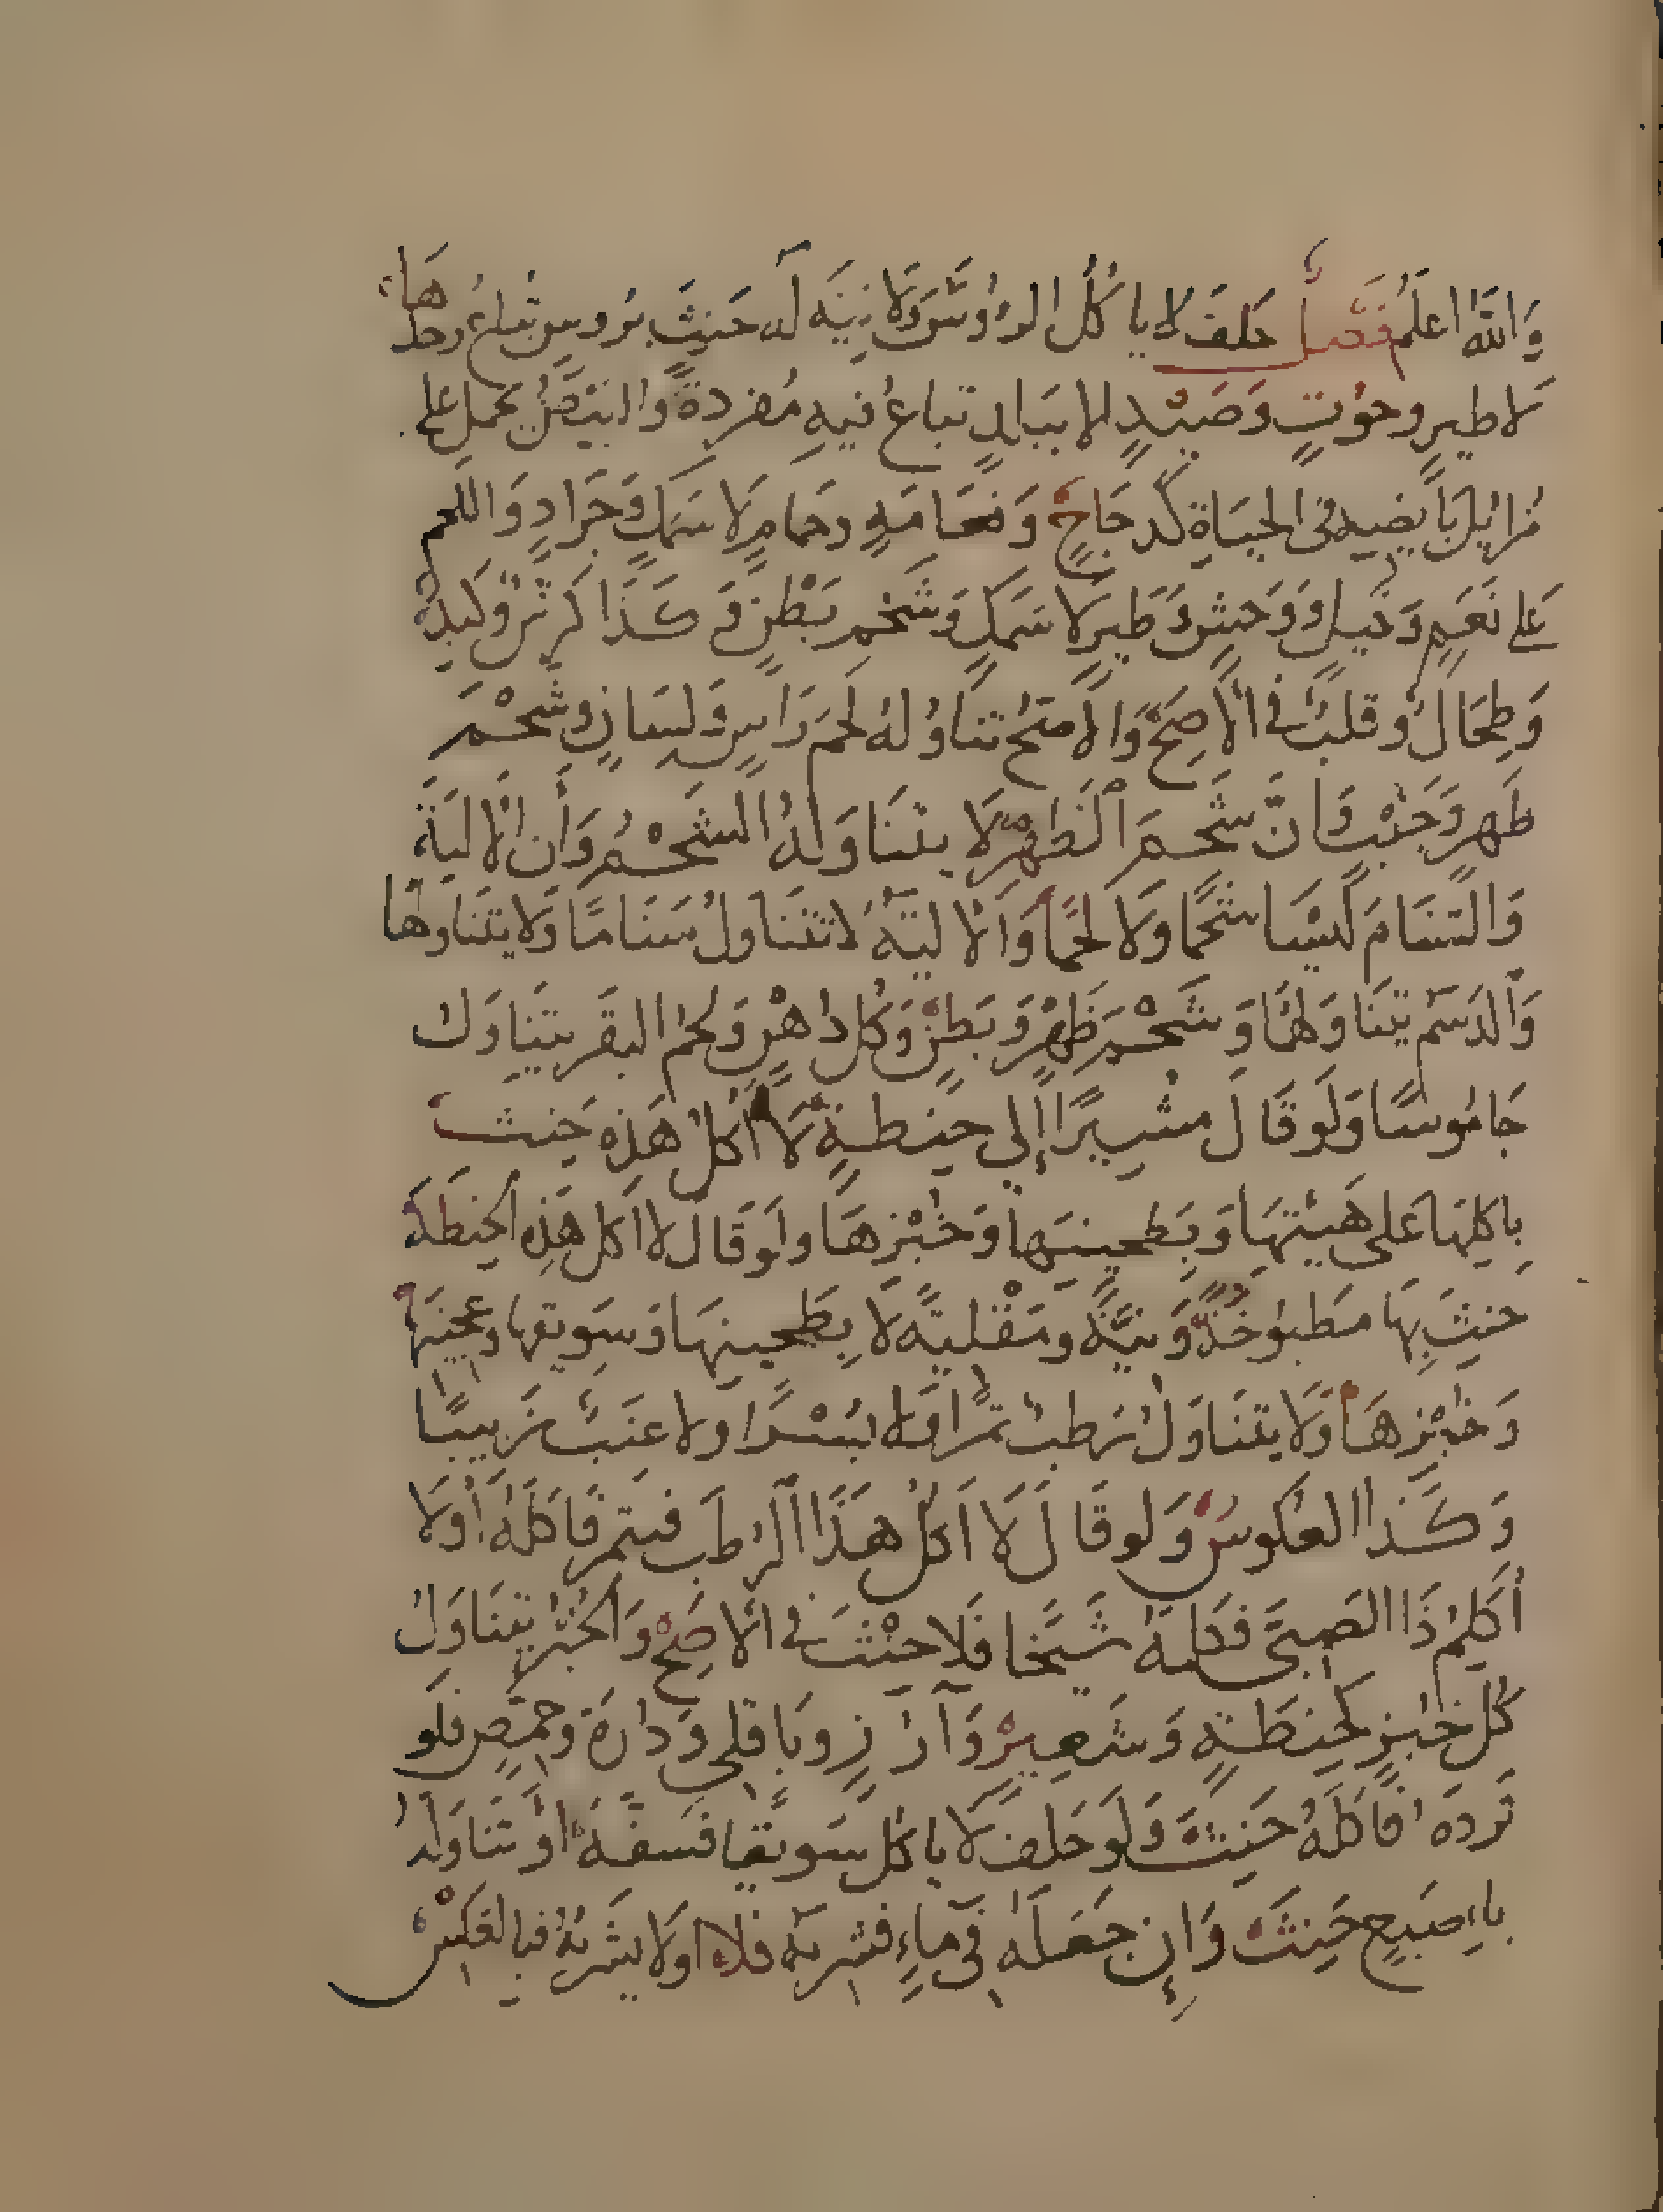 وَاللّٰه اعلَمُ فَصْلٌ حَلفَ لا ياكُلُ الرُؤُسَ وَلَا نِيَه له حَنِثَ برُوسٍ تباعُ وحدهَا
لَا طيرٍ وحوُتٍ وَصَيْدٍ الا ببَلدٍ تباعُ فيهِ مُفردةً والبَيْضُ يحمل على
مُزائِل بَايضِه فى الحيَاةِ كدجَاجٍ وَنعَامَةٍ وحمَامٍ لَا سَمَكٍ وَجَرَادٍ وَاللحم
عَلى نَعَمٍ وَخَيلٍ وَوَحشٍ وَطيرٍ لَا سَمَكٍ وَشَحْمِ بَطْنٍ وَكَذَا كرشٌ وَكبِدٌ
وَطِحَالٌ وقلبٌ في الْاصَحِّ وَالْاصَحُّ تناوُلهُ لحمَ رَاسٍ وَلسَانٍ وشَحْمَ
ظَهرٍ وَجَنْبٍ وَانَّ شَحمَ الظهْرِ لَا يتنَاوَلهُ الشَحْمُ وَأن الْاليَةَ
وَالسَنَامَ لَيْسَا شحمًا وَلَا لحمًا وَالْاليَةُ لَا تتنَاولُ سَنَامًا وَلا يتنَاوها
وَالدَسَم يتنَاوَلهَا وَشَحْمَ ظَهْرٍ وَبَطنٍ وَكُل دُهْنٍ وَلحمُ البقَر يتنَاوَل
جَامُوسًا وَلَو قَالَ مشِيرًا إلى حِنطةٍ لَا اٰكلُ هَذِه حَنِث
بِاكلِهَا عَلى هَيْئتهَا وَبِطَحينهَا وَخُبْزهَا ولو قَالَ لا اٰكل هَذِه الحِنطَةَ
حَنِثَ بِهَا مطبُوخَةً وَنيَّةً ومَقْليَّةً لَا بِطَحينهَا وَسَوِيقهَا وعجينهَا
وَخُبْزهَا وَلَا يتنَاوَلُ رطبٌ تمرًا وَلا بُسْرًا ولا عنَبٌ زبيبًا
وَكَذا العكوسُ وَلو قَالَ لَا اٰكلُ هَذَا الرُطَبَ فتتمرَ فَاكلَهُ أَوْلَا
أُكلِمُ ذَا الصَبىَّ فكلمَهُ شَيْخًا فَلَا حِنْثَ في الْاصَحِّ وَالخُبْزُ يتنَاوَلُ
كُل خُبْزٍ كحِنطَةٍ وَشَعِيرٍ وَآرُزٍ وبَاقلى وَذرَة وحمّصٍ فلَو
ثَردَهُ فَاكلَهُ حَنِثَ وَلَو حَلف لَا ياكل سَويقا فسَفَّهُ أَوْ تنَاولَهُ
باءِصبَعٍ حَنِثَ وَإن جَعَلَهُ فى مَاءٍ فشربَهُ فَلا اوَلا يشَربُهُ فبالعَكْسِ